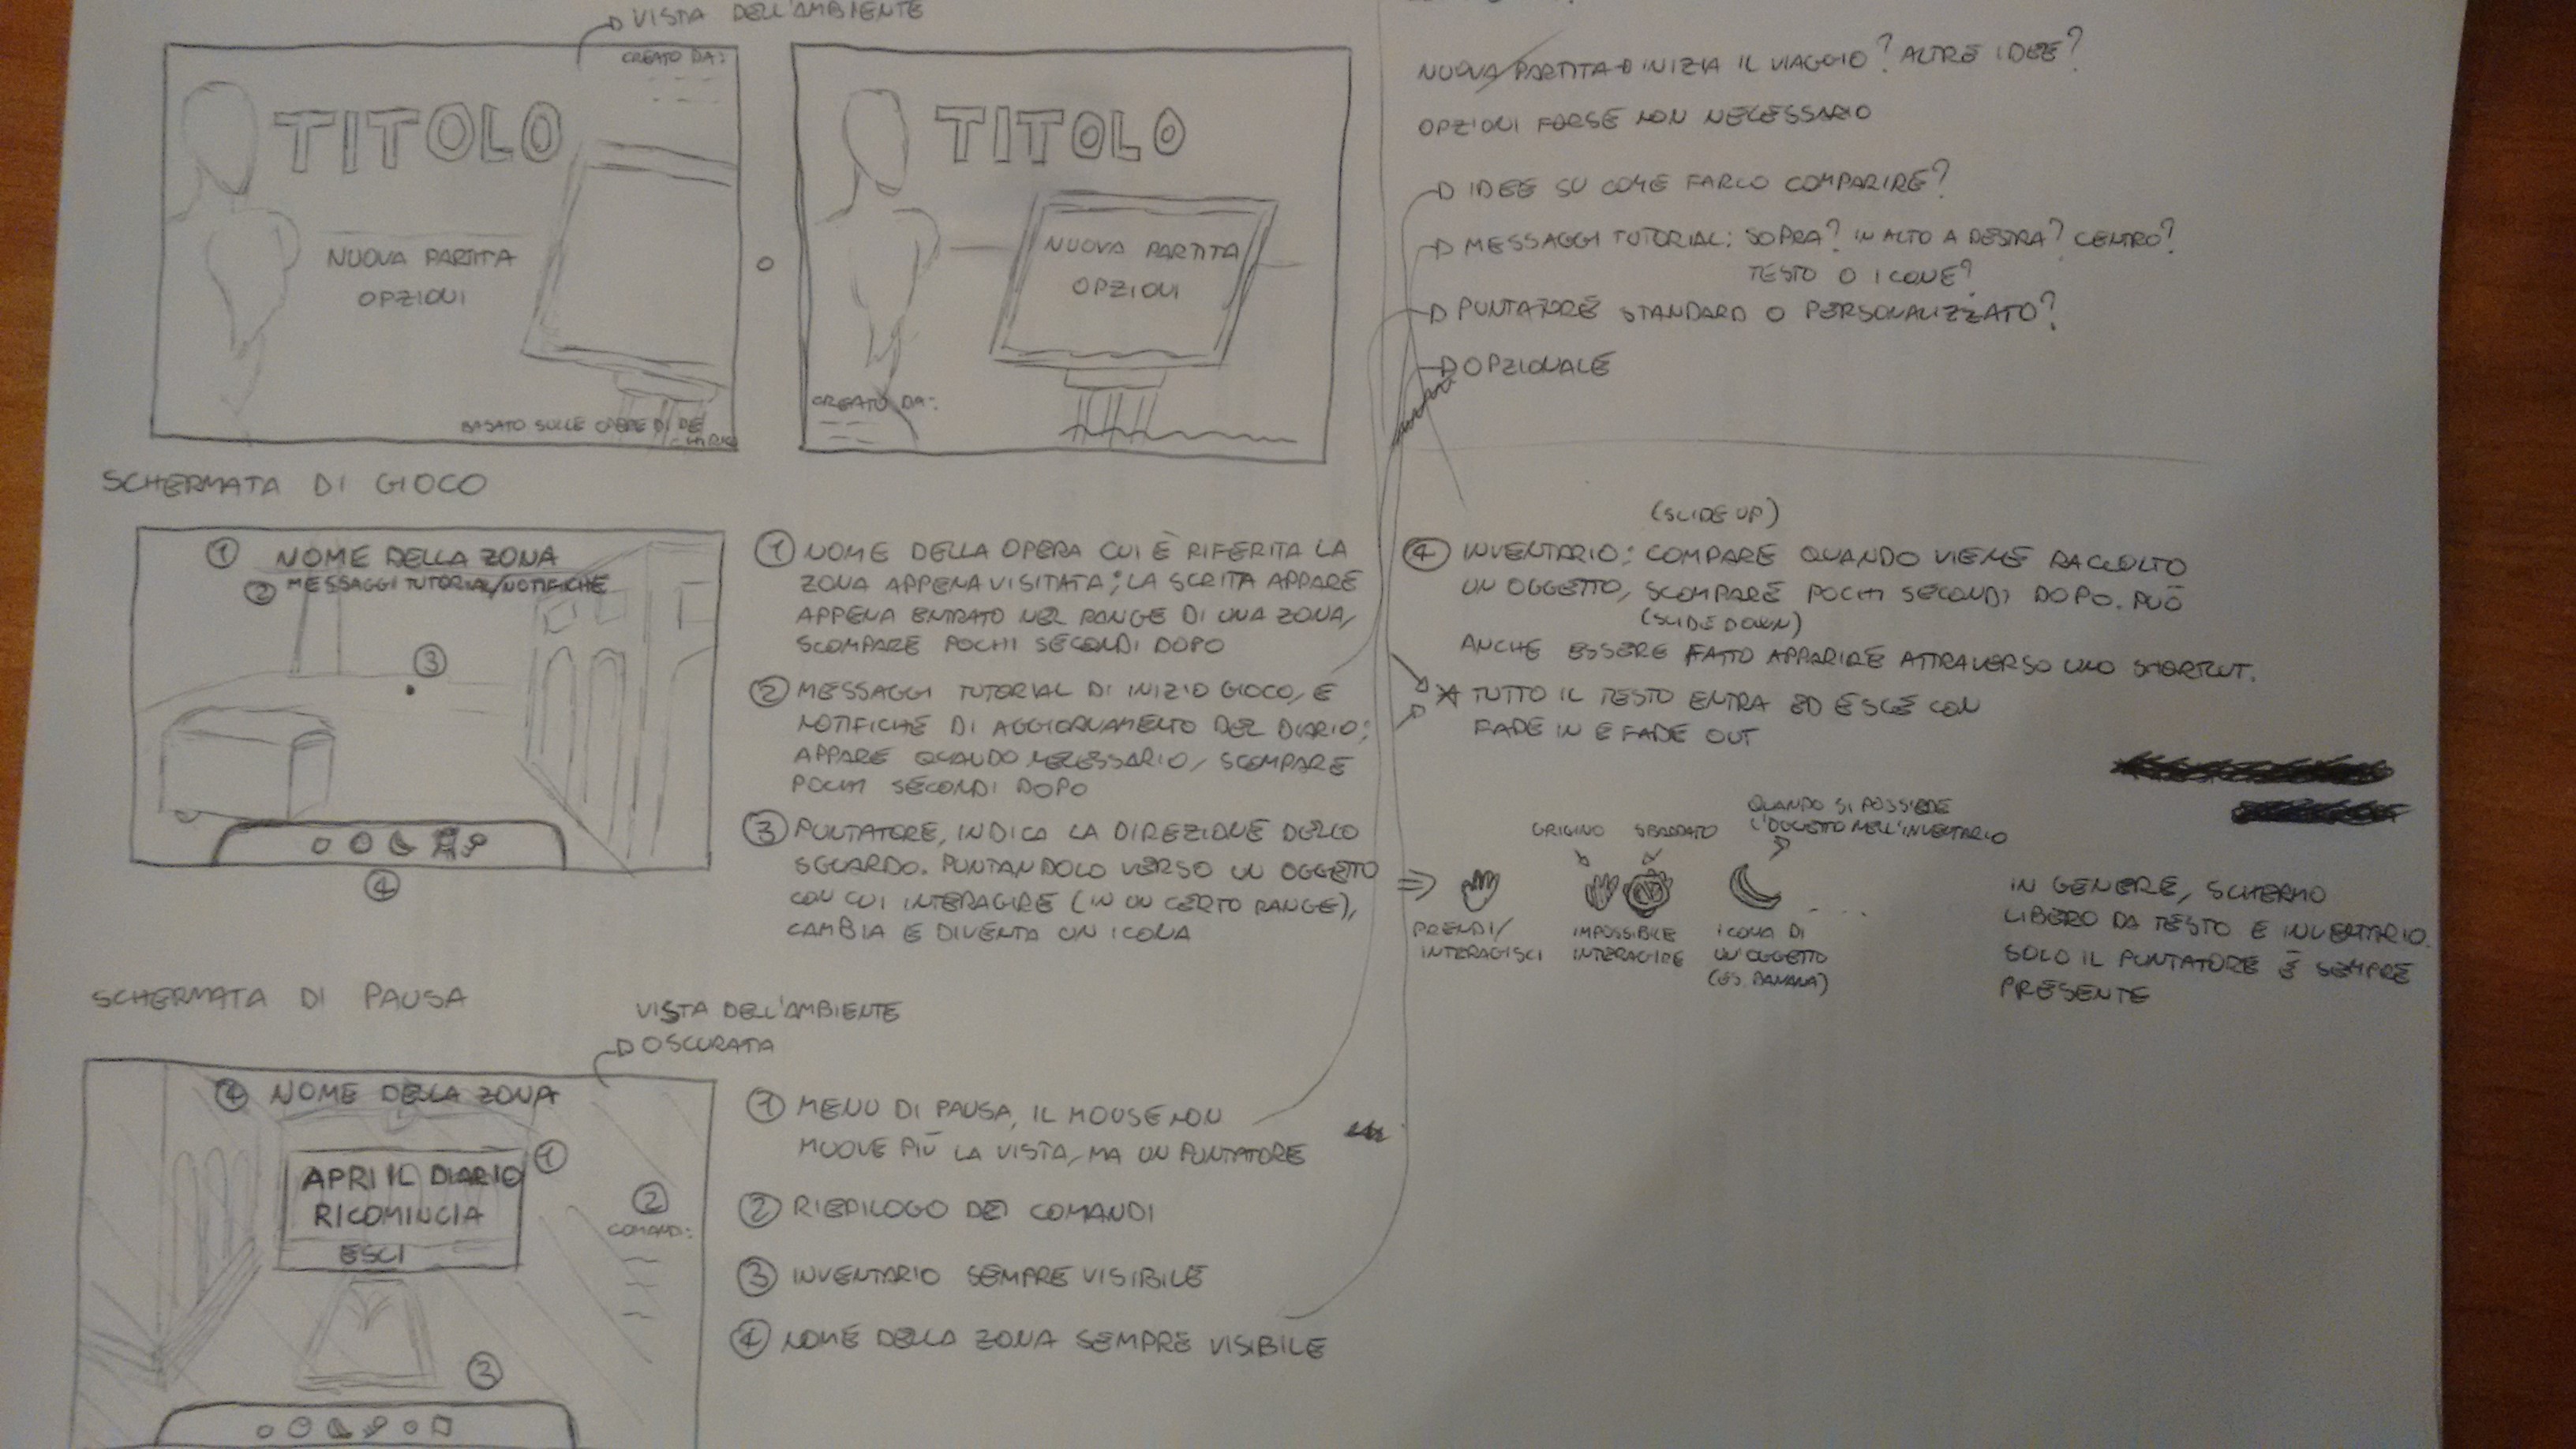 VISTA DELL'AMBIENTE
CREATO DA:
TITOLO
NUOVA PARTITA
OPZIONI
BASATO SULLE OPERE DI DE
O
TITOLO
NUOVA PARTITA
OPZIONI
CREATO DA:
NUOVA PARTITA INIZIA IL VIAGGIO? ALTRE IDEE?
OPZIONI FORSE NON NECESSARIO
IDEE SU COME FARLO COMPARIRE?
MESSAGGI TUTORIAL: SOPRA? IN ALTO A DESTRA? CENTRO?
TESTO O ICONE?
PUNTATORE STANDARD O PERSONALIZZATO?
OPZIONALE
SCHERMATA DI GIOCO
1 NOME DELLA ZONA
2 MESSAGGI TUTORIAL/NOTIFICHE
3
4
1 NOME DELLA OPERA CUI È RIFERITA LA
ZONA APPENA VISITATA; LA SCRITA APPARE
APPENA ENTRATO NEL RANGE DI UNA ZONA,
SCOMPARE POCHI SECONDI DOPO
2 MESSAGGI TUTORIAL DI INIZIO GIOCO, E
NOTIFICHE DI AGGIORNAMENTO DEL DIARIO;
APPARE QUANDO NECESSARIO, SCOMPARE
POCHI SECONDI DOPO
3 PUNTATORE, INDICA LA DIREZIONE DELLO
SGUARDO. PUNTANDOLO VERSO UN OGGETTO
CON CUI INTERAGIRE (IN UN CERTO RANGE),
CAMBIA E DIVENTA UN ICONA
(SLIDE UP)
4 INVENTARIO: COMPARE QUANDO VIENE RACCOLTO
UN OGGETTO, SCOMPARE POCHI SECONDI DOPO. PUÒ
(SLIDE DOWN)
ANCHE ESSERE FATTO APPARIRE ATTRAVERSO UNO SHORTCUT.
* TUTTO IL TESTO ENTRA ED ESCE CON
FADE IN E FADE OUT
GRIGINO
SBARRATO
QUANDO SI POSSIEDE
L'OGGETTO NELL'INVENTARIO
PRENDI/
INTERAGISCI
IMPOSSIBILE
INTERAGIRE
ICONA DI
UN'OGGETTO
(ES. BANANA)
IN GENERE, SCHERMO
LIBERO DA TESTO E INVENTARIO.
SOLO IL PUNTATORE È SEMPRE
PRESENTE
SCHERMATA DI PAUSA
VISTA DELL'AMBIENTE
OSCURATA
4 NOME DELLA ZONA
APRI IL DIARIO
RICOMINCIA
ESCI
1
2
COMANDI:
3
1 MENU DI PAUSA, IL MOUSE NON
MUOVE PIÙ LA VISTA, MA UN PUNTATORE
2 RIEPILOGO DEI COMANDI
3 INVENTARIO SEMPRE VISIBILE
4 NOME DELLA ZONA SEMPRE VISIBILE